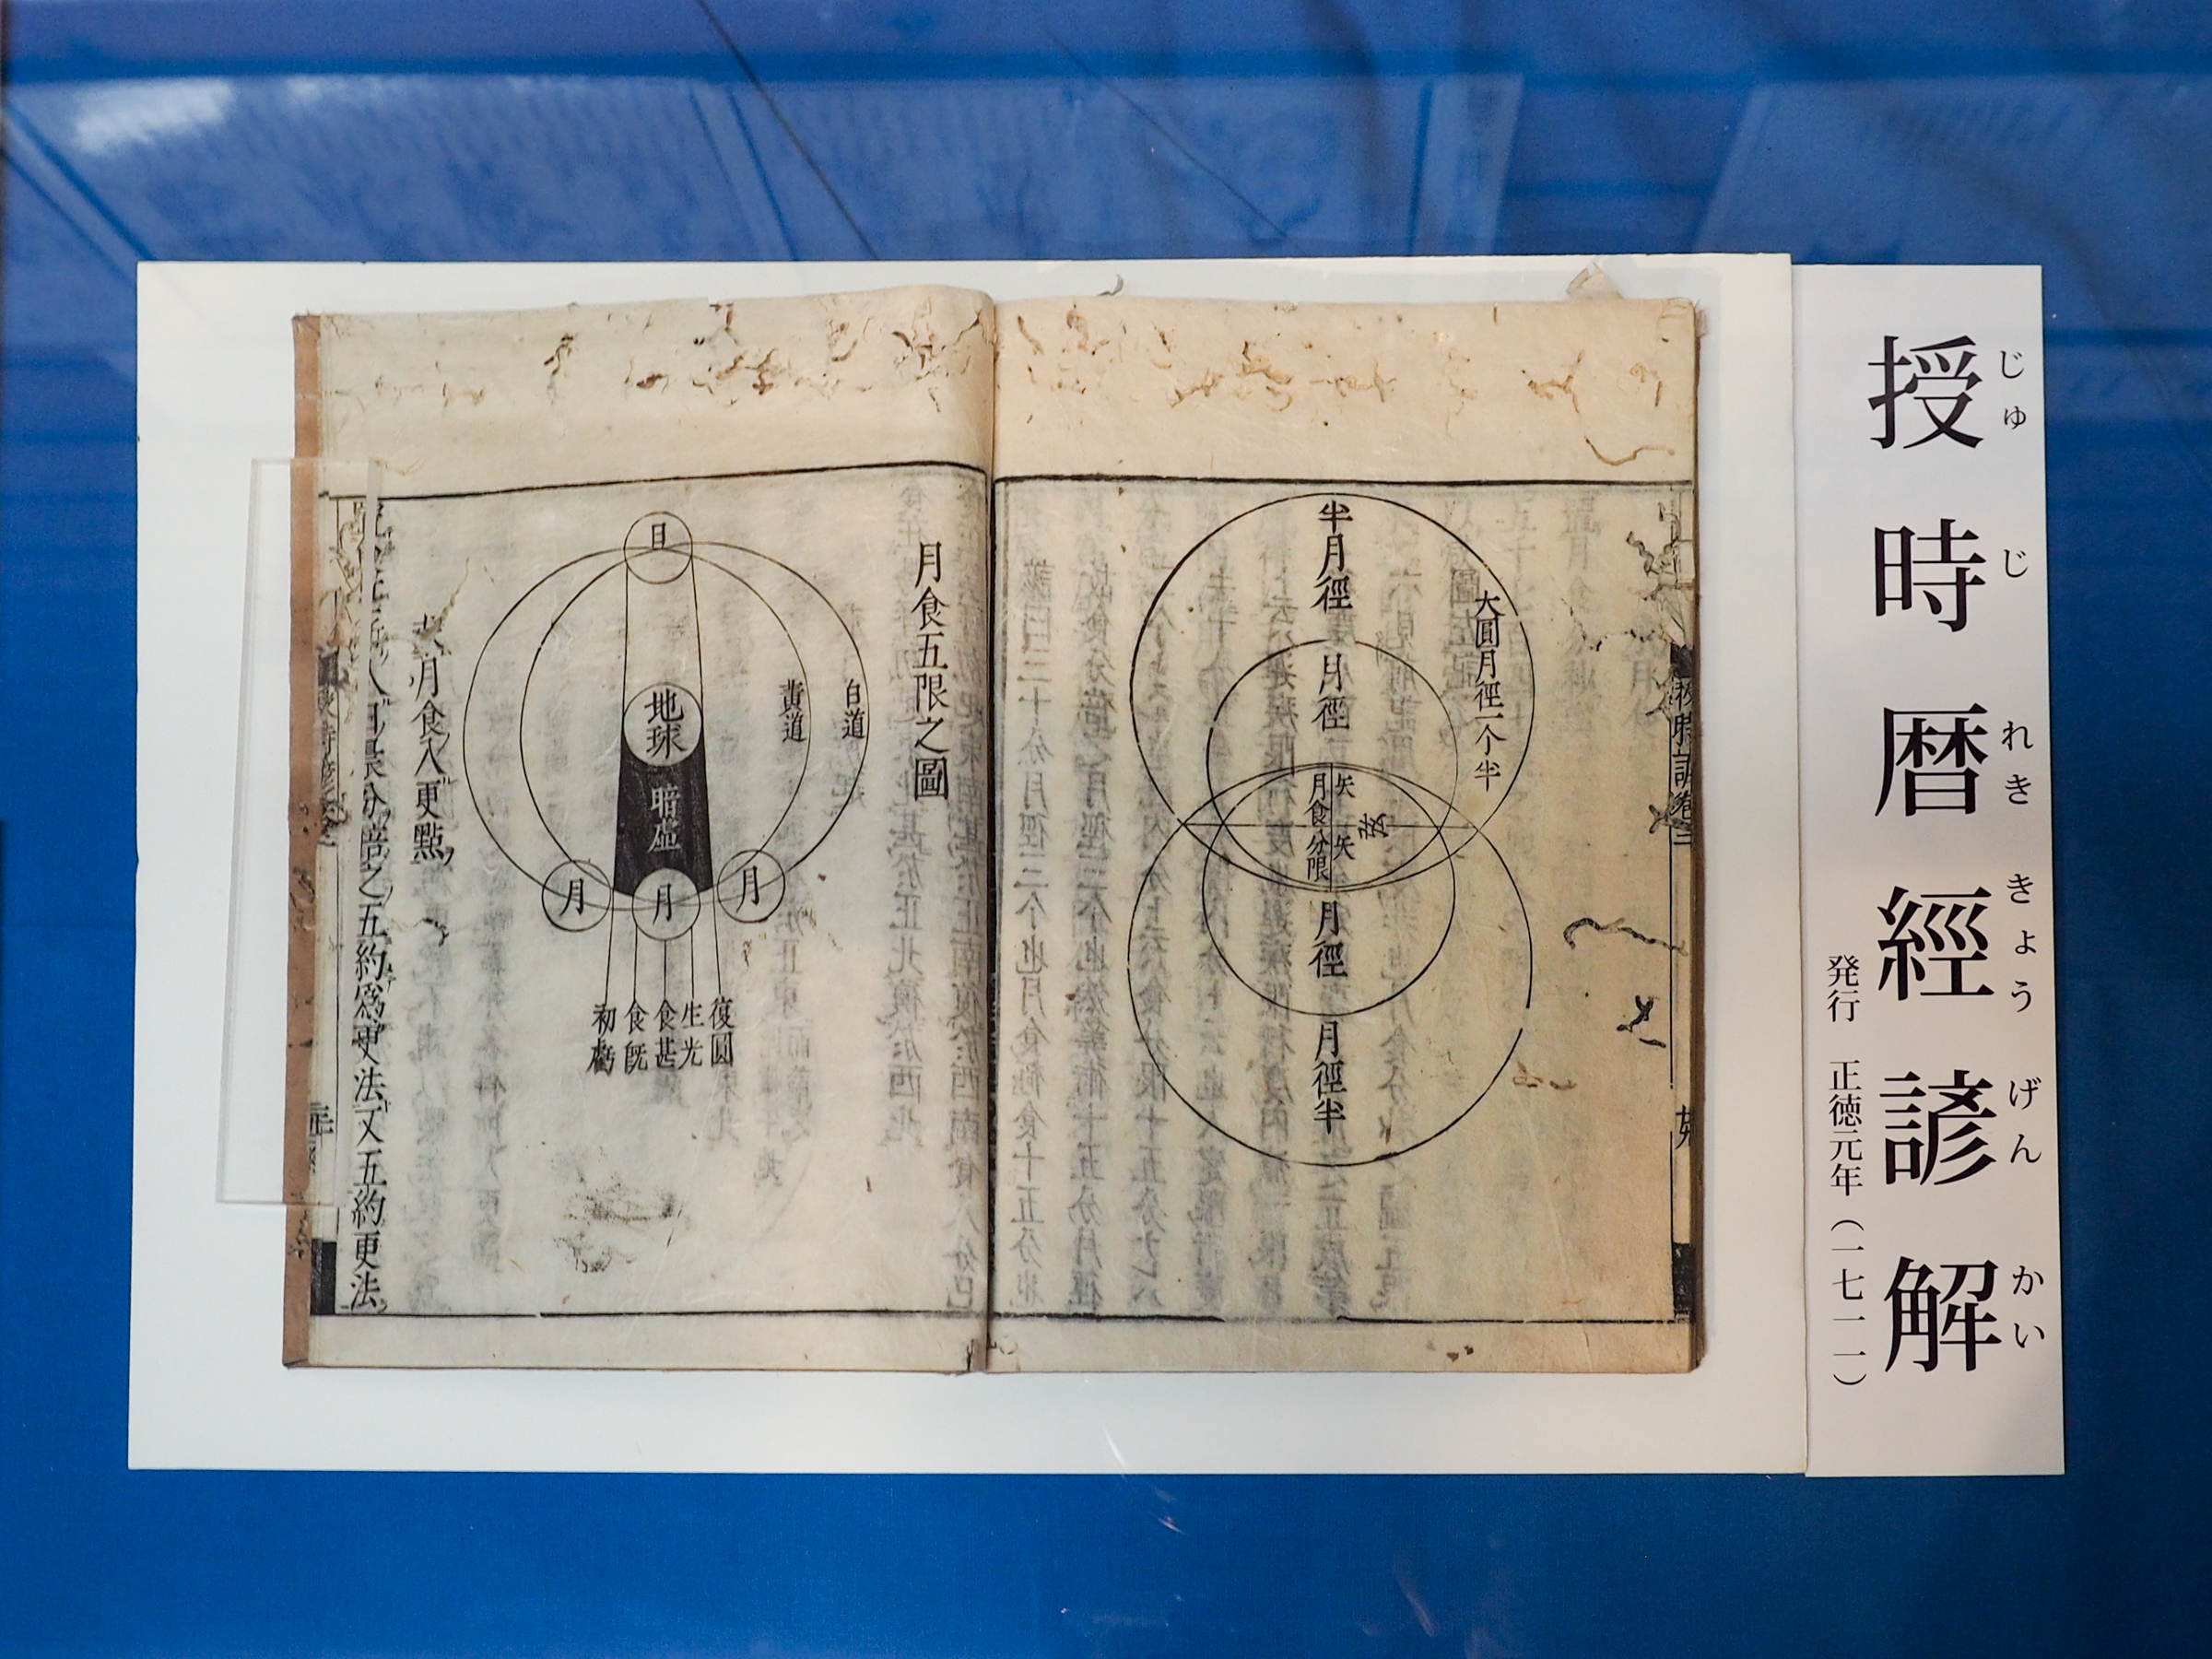 授時暦經諺解
じゅじれききょうげんかい
発行 正徳元年（一七一一）
半月徑
大圓月徑一个半
月徑
矢
月食分限
矢
月徑
月徑半
月食五限之圖
日
白道
黄道
地球
暗虚
月
月
月
復圓
生光
食甚
食既
初虧
月食入更點
分倍之五約爲更法又五約更法